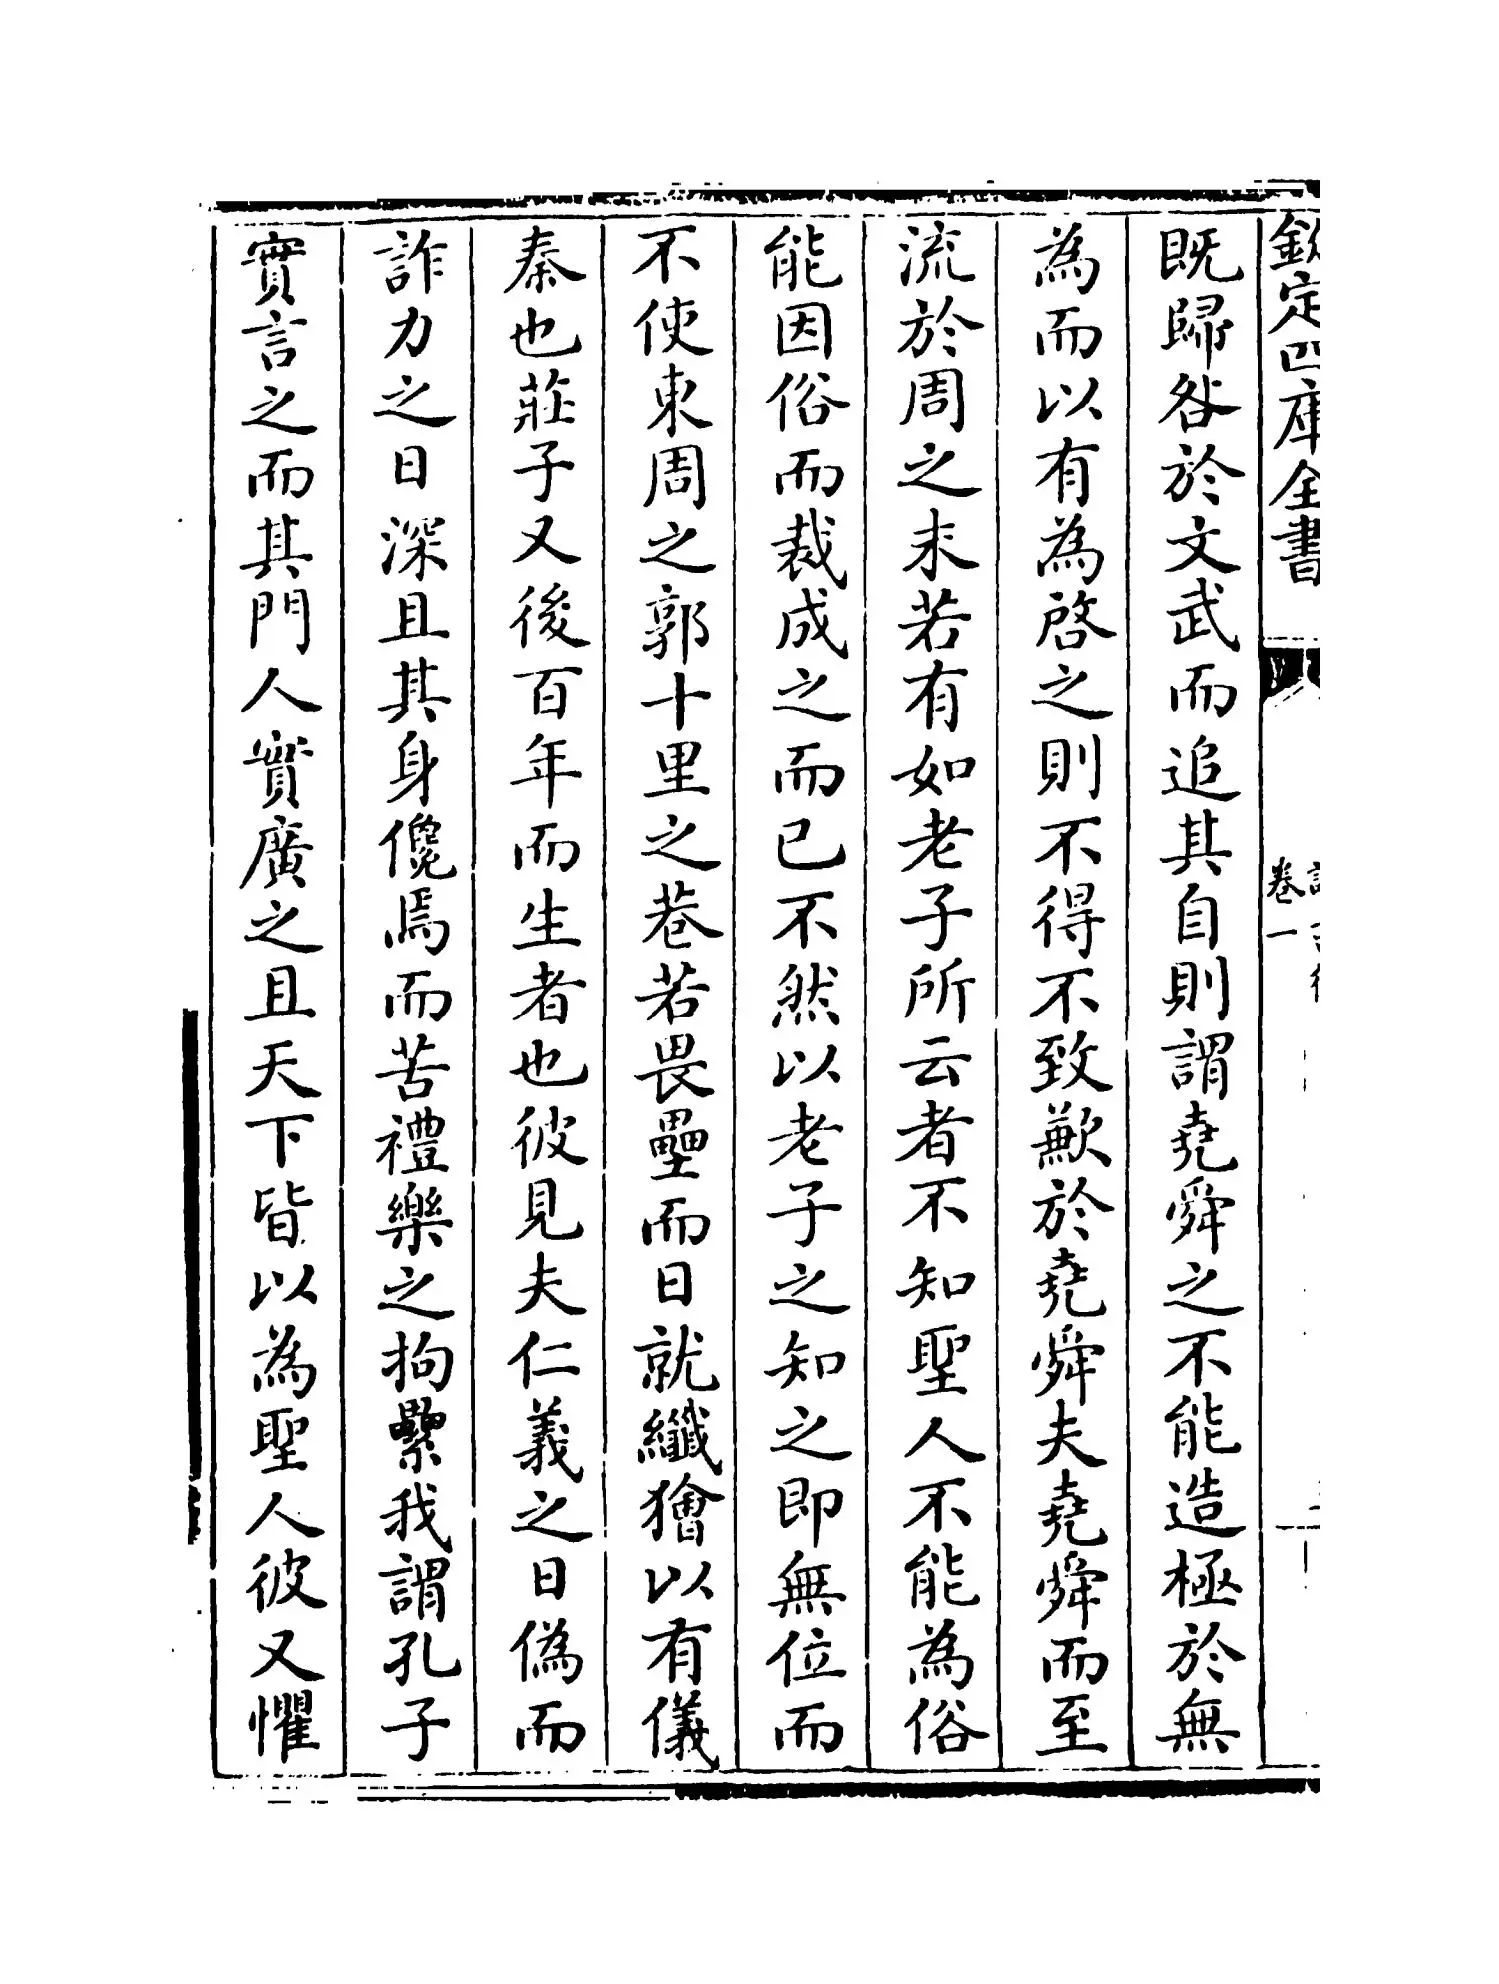 欽定四庫全書
卷一
既歸咎於文武而追其自則謂堯舜之不能造極於無
為而以有為啓之則不得不致歉於堯舜夫堯舜而至
流於周之末若有如老子所云者不知聖人不能為俗
能因俗而裁成之而已不然以老子之知之即無位而
不使東周之郭十里之巷若畏壘而日就纖獪以有儀
秦也莊子又後百年而生者也彼見夫仁義之日偽而
詐力之日深且其身儳焉而苦禮樂之拘纍我謂孔子
實言之而其門人實廣之且天下皆以為聖人彼又懼